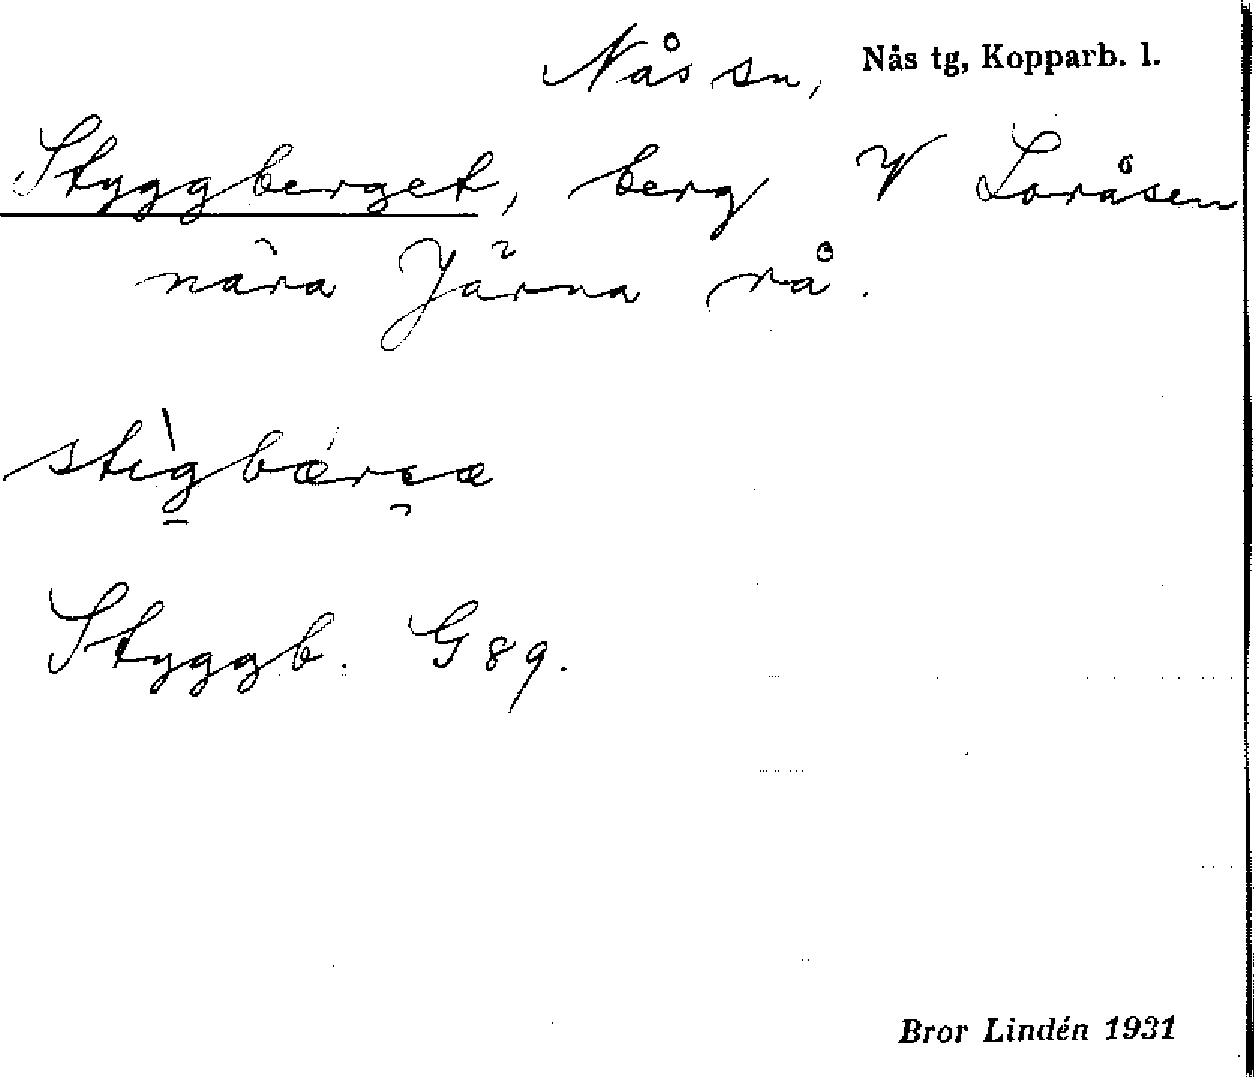 Nås sn, Nås tg, Kopparb. l.
Styggberget, berg V Loråsen
nära Järna rå.
Styggb. G 89.
Bror Lindén 1931